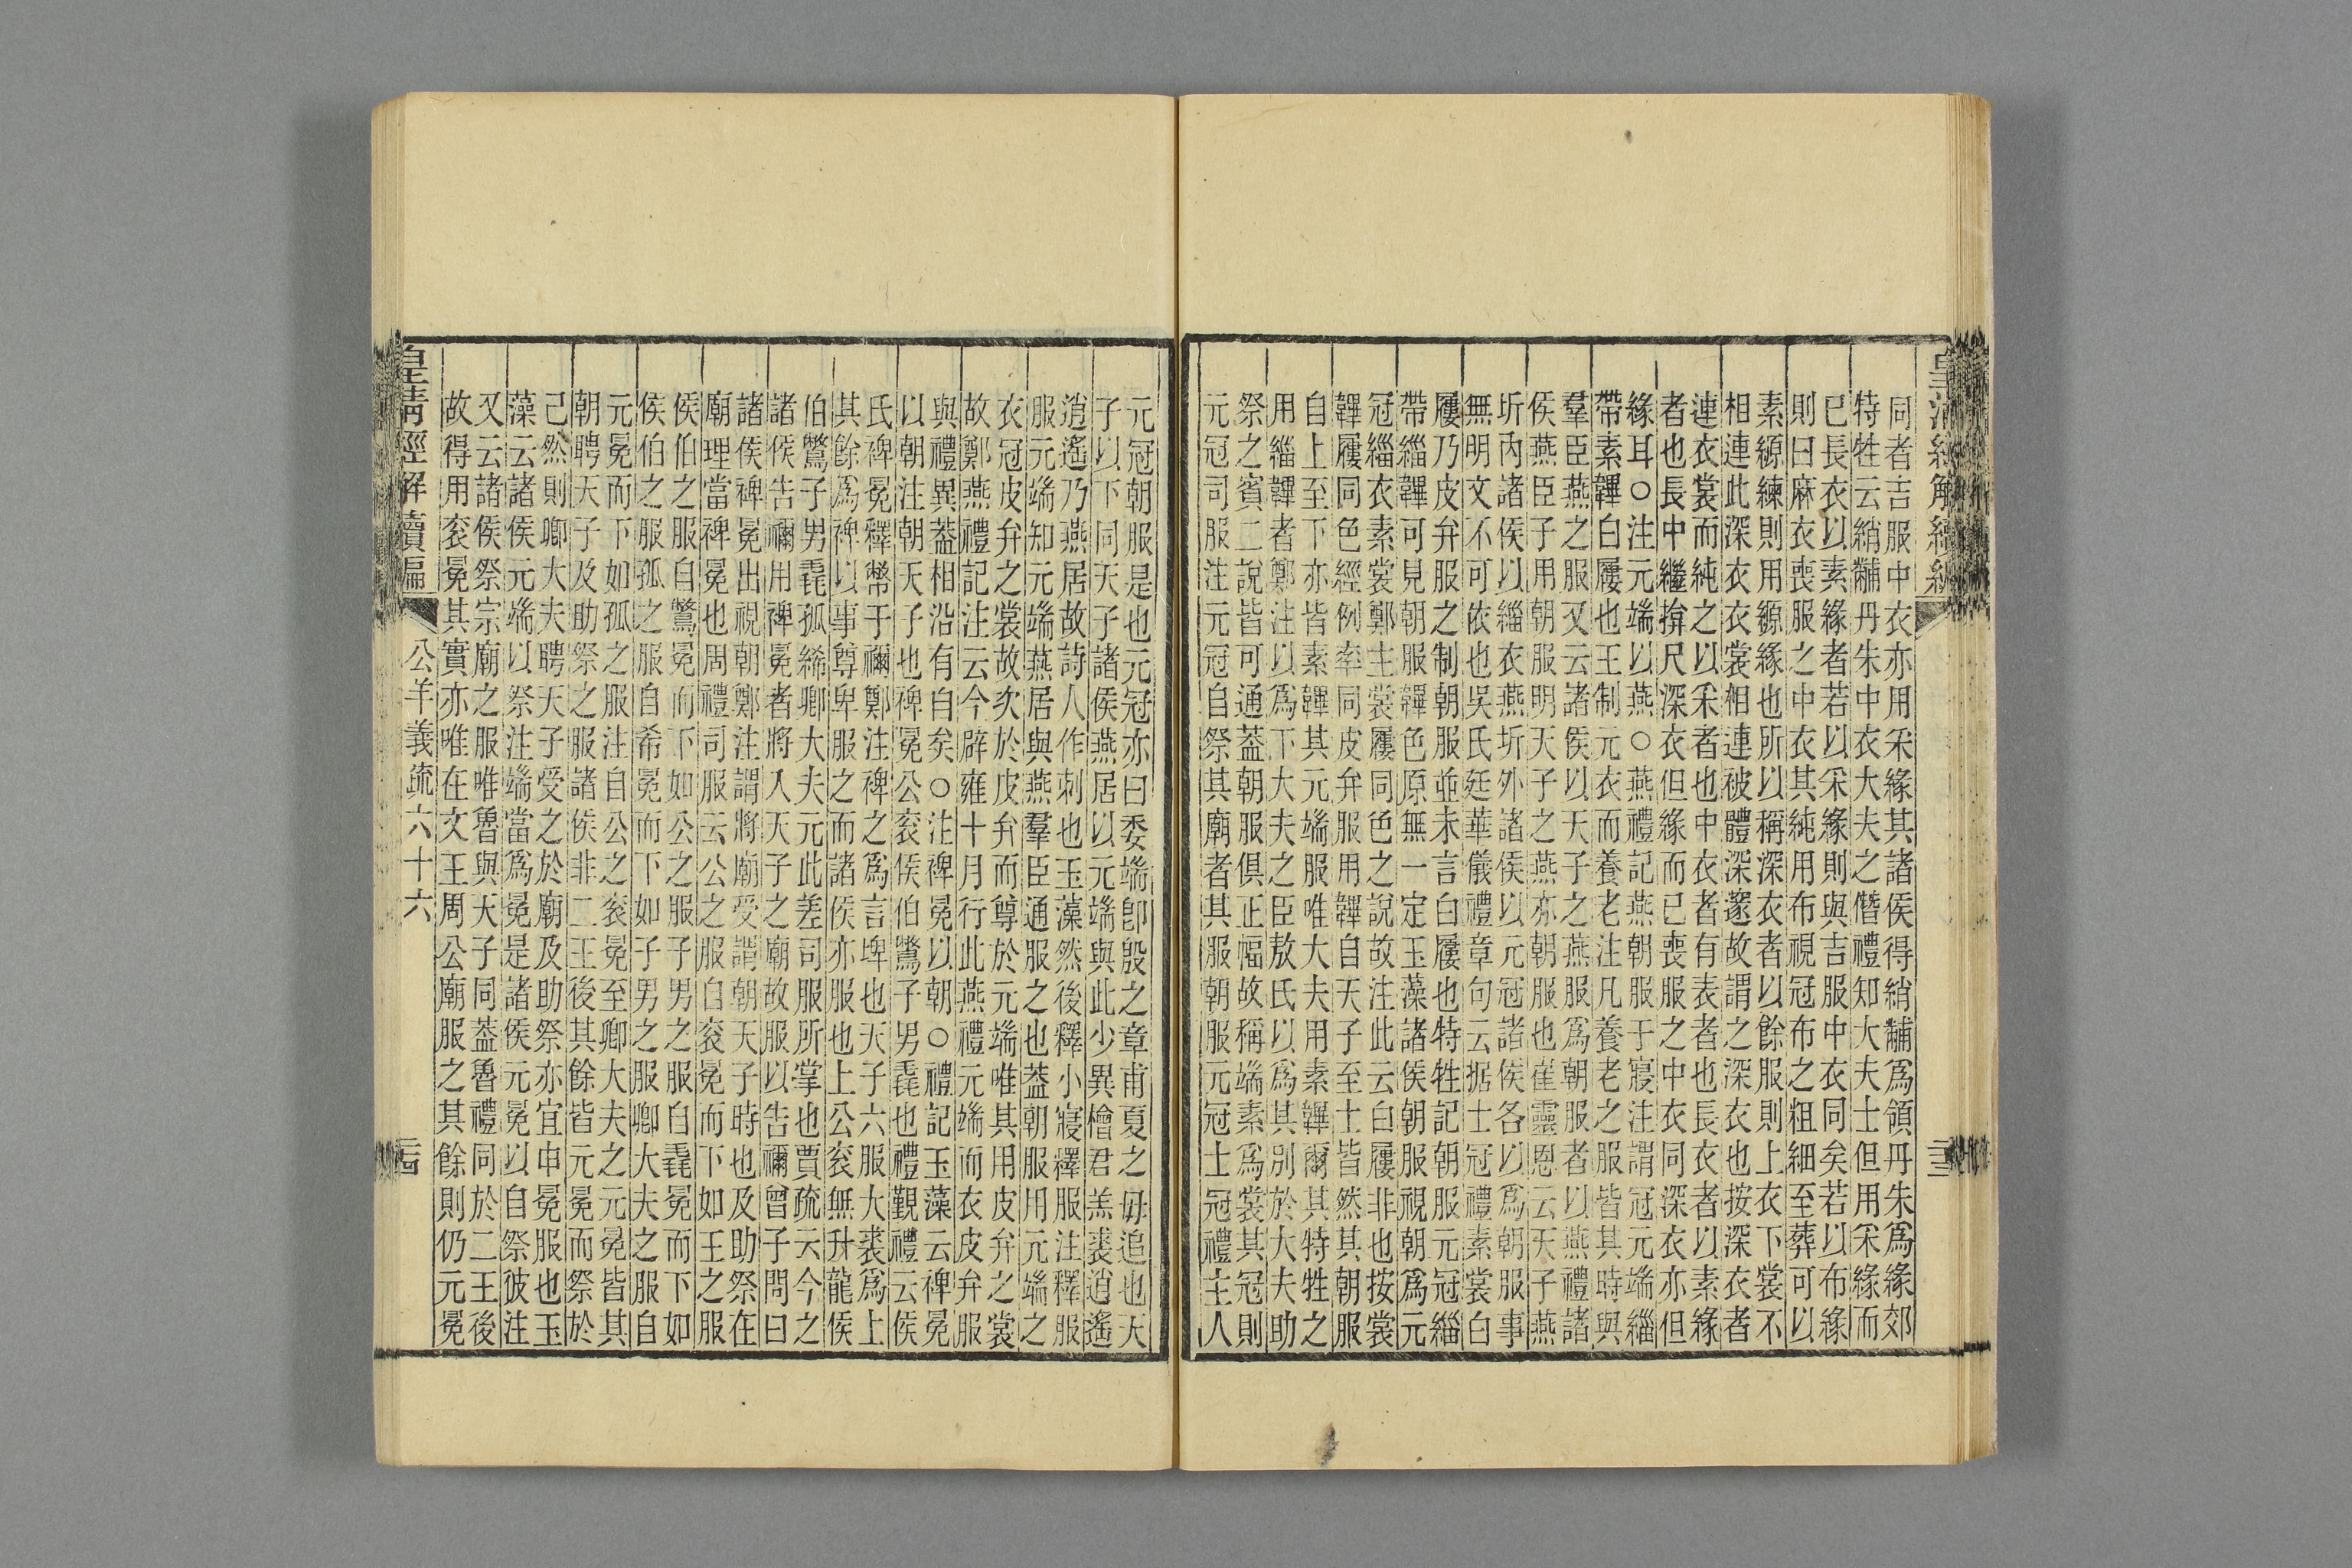 同者吉服中衣亦用采緣其諸侯得綃黼爲領丹朱爲緣郊
特牲云綃黼丹朱中衣大夫之僭禮知大夫士但用采緣而
已長衣以素緣者若以采緣則與吉服中衣同矣若以布緣
則曰麻衣喪服之中衣其純用布視冠布之粗細至葬可以
素縓練則用縓緣也所以稱深衣者以餘服則上衣下裳不
相連此深衣衣裳相連被體深邃故謂之深衣也按深衣者
連衣裳而純之以采者也中衣者有表者也長衣者以素緣
者也長中繼揜尺深衣但緣而已喪服之中衣同深衣亦但
緣耳○注元端以燕○燕禮記燕朝服于寢注謂冠元端緇
帶素韠白屨也王制元衣而養老注凡養老之服皆其時與
羣臣燕之服又云諸侯以天子之燕服爲朝服者以燕禮諸
侯燕臣子用朝服明天子之燕亦朝服也崔靈恩云天子燕
圻內諸侯以緇衣燕圻外諸侯以元冠諸侯各以爲朝服事
無明文不可依也吳氏廷華儀禮章句云据士冠禮素裳白
屨乃皮弁服之制朝服並未言白屨也特牲記朝服元冠緇
帶緇韠可見朝服韠色原無一定玉藻諸侯朝服視朝爲元
冠緇衣素裳鄭主裳屨同色之說故注此云白屨非也按裳
韠屨同色經例率同皮弁服用韠自天子至士皆然其朝服
自上至下亦皆素韠其元端服唯大夫用素韠爾其特牲之
用緇韠者鄭注以爲下大夫之臣敖氏以爲其別於大夫助
祭之賓二說皆可通蓋朝服俱正幅故稱端素爲裳其冠則
元冠司服注元冠自祭其廟者其服朝服元冠士冠禮主人
元冠朝服是也元冠亦曰委端卽殷之章甫夏之毋追也天
子以下同天子諸侯燕居以元端與此少異檜君羔裘逍遙
逍遙乃燕居故詩人作刺也玉藻然後釋小寢釋服注釋服
服元端知元端燕居與燕羣臣通服之也蓋朝服用元端之
衣冠皮弁之裳故次於皮弁而尊於元端唯其用皮弁之裳
故鄭燕禮記注云今辟雍十月行此燕禮元端而衣皮弁服
與禮異蓋相沿有自矣○注裨冕以朝○禮記玉藻云裨冕
以朝注朝天子也裨冕公衮侯伯鷩子男毳也禮覲禮云侯
氏裨冕釋幣于禰鄭注裨之爲言埤也天子六服大裘爲上
其餘爲裨以事尊卑服之而諸侯亦服也上公衮無升龍侯
伯鷩子男毳孤絺卿大夫元此差司服所掌也賈疏云今之
諸侯告禰用裨冕者將入天子之廟故服以告禰曾子問曰
諸侯裨冕出視朝鄭注謂將廟受謂朝天子時也及助祭在
廟理當裨冕也周禮司服云公之服自衮冕而下如王之服
侯伯之服自鷩冕而下如公之服子男之服自毳冕而下如
侯伯之服孤之服自希冕而下如子男之服卿大夫之服自
元冕而下如孤之服注自公之衮冕至卿大夫之元冕皆其
朝聘天子及助祭之服諸侯非二王後其餘皆元冕而祭於
己然則卿大夫聘天子受之於廟及助祭亦宜申冕服也玉
藻云諸侯元端以祭注端當爲冕是諸侯元冕以自祭彼注
又云諸侯祭宗廟之服唯魯與天子同蓋魯禮同於二王後
故得用衮冕其實亦唯在文王周公廟服之其餘則仍元冕
皇清經解續編
公羊義疏六十六